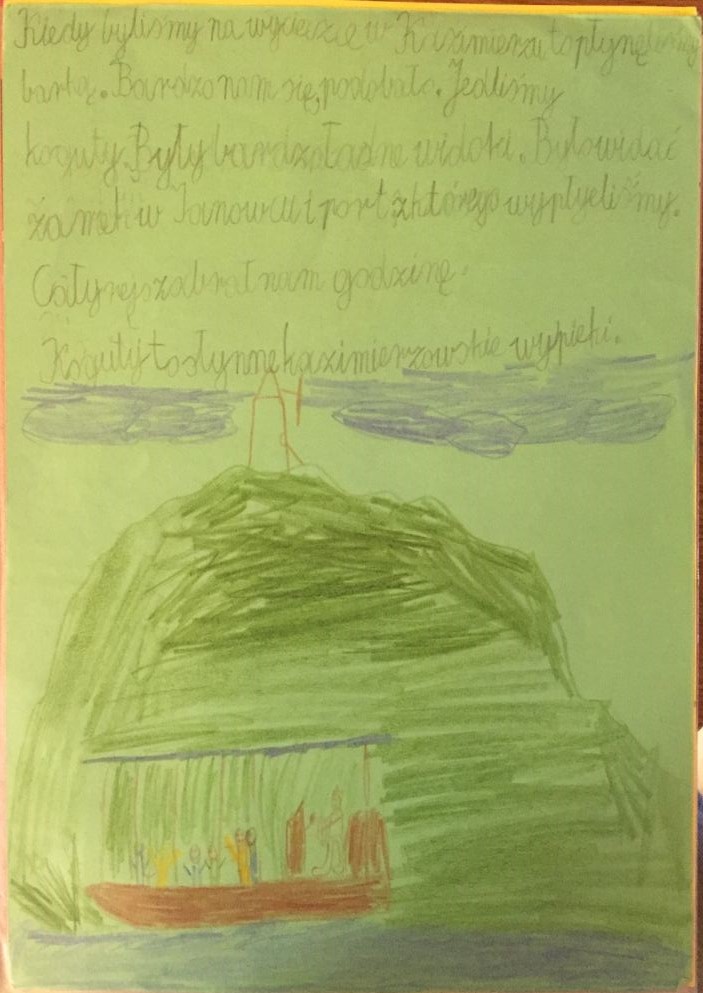 Kiedy byliśmy na wycieczce w Kazimierzu to płynęliśmy
barką. Bardzo nam się podobało. Jedliśmy
koguty. Były bardzo ładne widoki. Było widać
zamek w Janowcu i port z którego wypłyeliśmy.
Cały rejs zabrał nam godzinę.
Koguty to słynne kazimierzowskie wypieki.